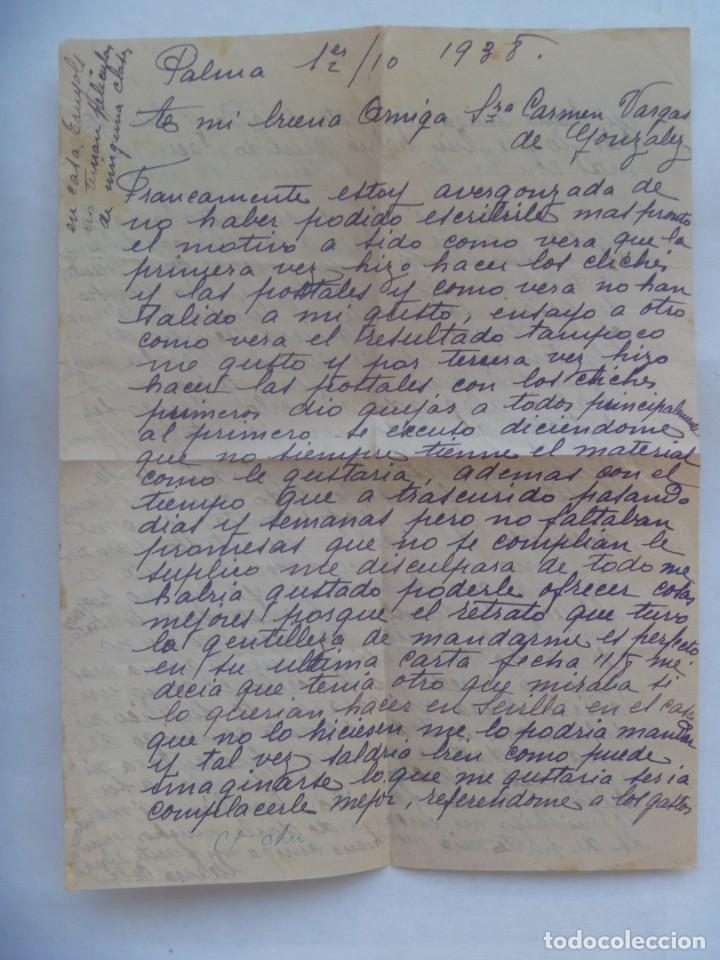 en casa Ernsols
no tenian peliculas
de ninguna clase
Palma 1/10 1938.
A mi buena Amiga Sra Carmen Vargas
de Gonzalez
Francamente estoy avergonzada de
no haber podido escribirle mas pronto
el motivo a sido como vera que la
primera vez hizo hacer los clichés
y las postales y como vera no han
salido a mi gusto, ensayo a otro
como vera el resultado tampoco
me gusto y por tercera vez hizo
hacer las postales con los cliches
primeros dio quejas a todos principalmente
al primero se excuso diciendome
que no siempre tienne el material
como le gustaria, ademas con el
tiempo que a trascurido pasando
dias y semanas pero no faltaban
promesas que no se complian le
suplico me disculpara de todo me
habria gustado poderle ofrecer cosas
mejores porque el retrato que tuvo
la gentilleza de mandarme es perfecto
en su ultima carta fecha 11/8 me
decia que tenia otro que miraba si
lo querian hacer en Sevilla en el caso
que no lo hiciesen me lo podria mandar
y tal vez saldria bien como puede
imaginarse lo que me gustaria seria
complacerle mejor, referendome a los gastos
todocoleccion
todocoleccion.net